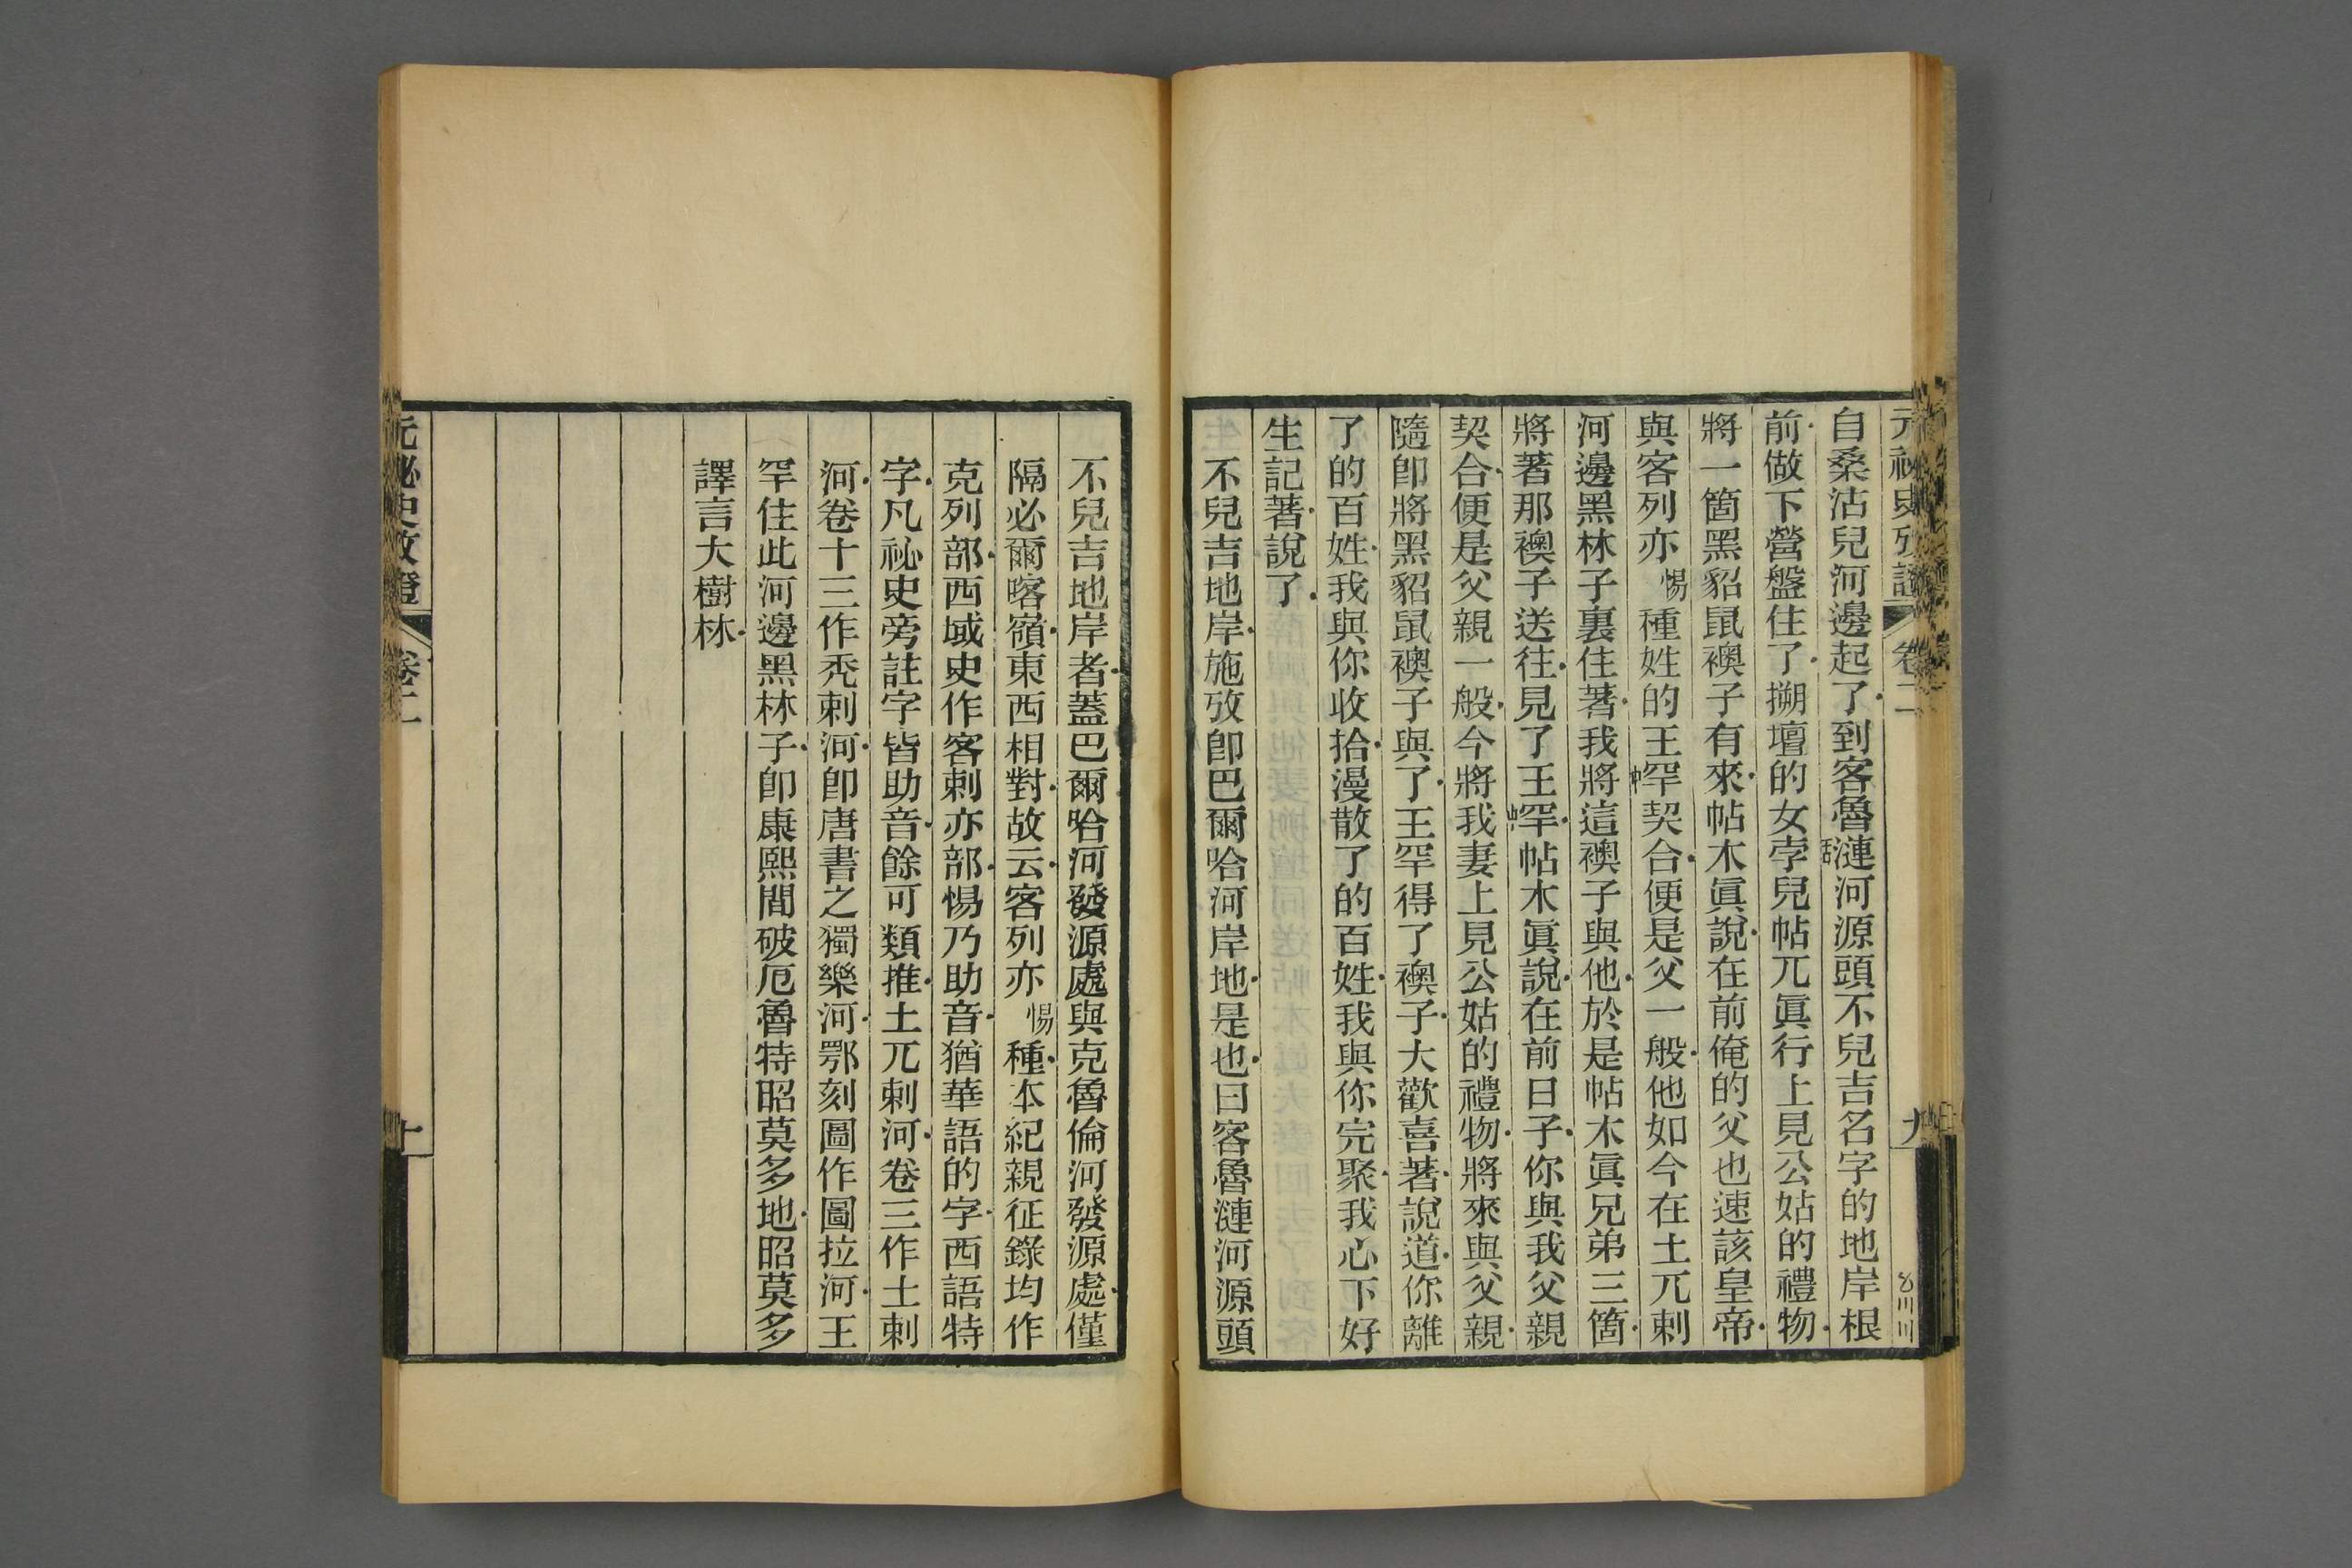 元祕史攷證 卷二 九
自桑沽兒河邊起了到客魯漣河源頭不兒吉名字的地岸根
前做下營盤住了搠壇的女孛兒帖兀眞行上見公姑的禮物
將一箇黑貂鼠襖子有來帖木眞說在前俺的父也速該皇帝
與客列亦惕種姓的王罕契合便是父一般他如今在土兀剌
河邊黑林子裏住著我將這襖子與他於是帖木眞兄弟三箇
將著那襖子送往見了王罕帖木眞說在前日子你與我父親
契合便是父親一般今將我妻上見公姑的禮物將來與父親
隨卽將黑貂鼠襖子與了王罕得了襖子大歡喜著說道你離
了的百姓我與你收拾漫散了的百姓我與你完聚我心下好
生記著說了
不兒吉地岸施攷卽巴爾哈河岸地是也曰客魯漣河源頭
不兒吉地岸者蓋巴爾哈河發源處與克魯倫河發源處僅
隔必爾喀嶺東西相對故云客列亦惕種本紀親征錄均作
克列部西域史作客剌亦部惕乃助音猶華語的字西語特
字凡祕史旁註字皆助音餘可類推土兀剌河卷三作土剌
河卷十三作禿剌河卽唐書之獨樂河鄂刻圖作圖拉河王
罕住此河邊黑林子卽康熙間破厄魯特昭莫多地昭莫多
譯言大樹林
元祕史攷證 卷二 十